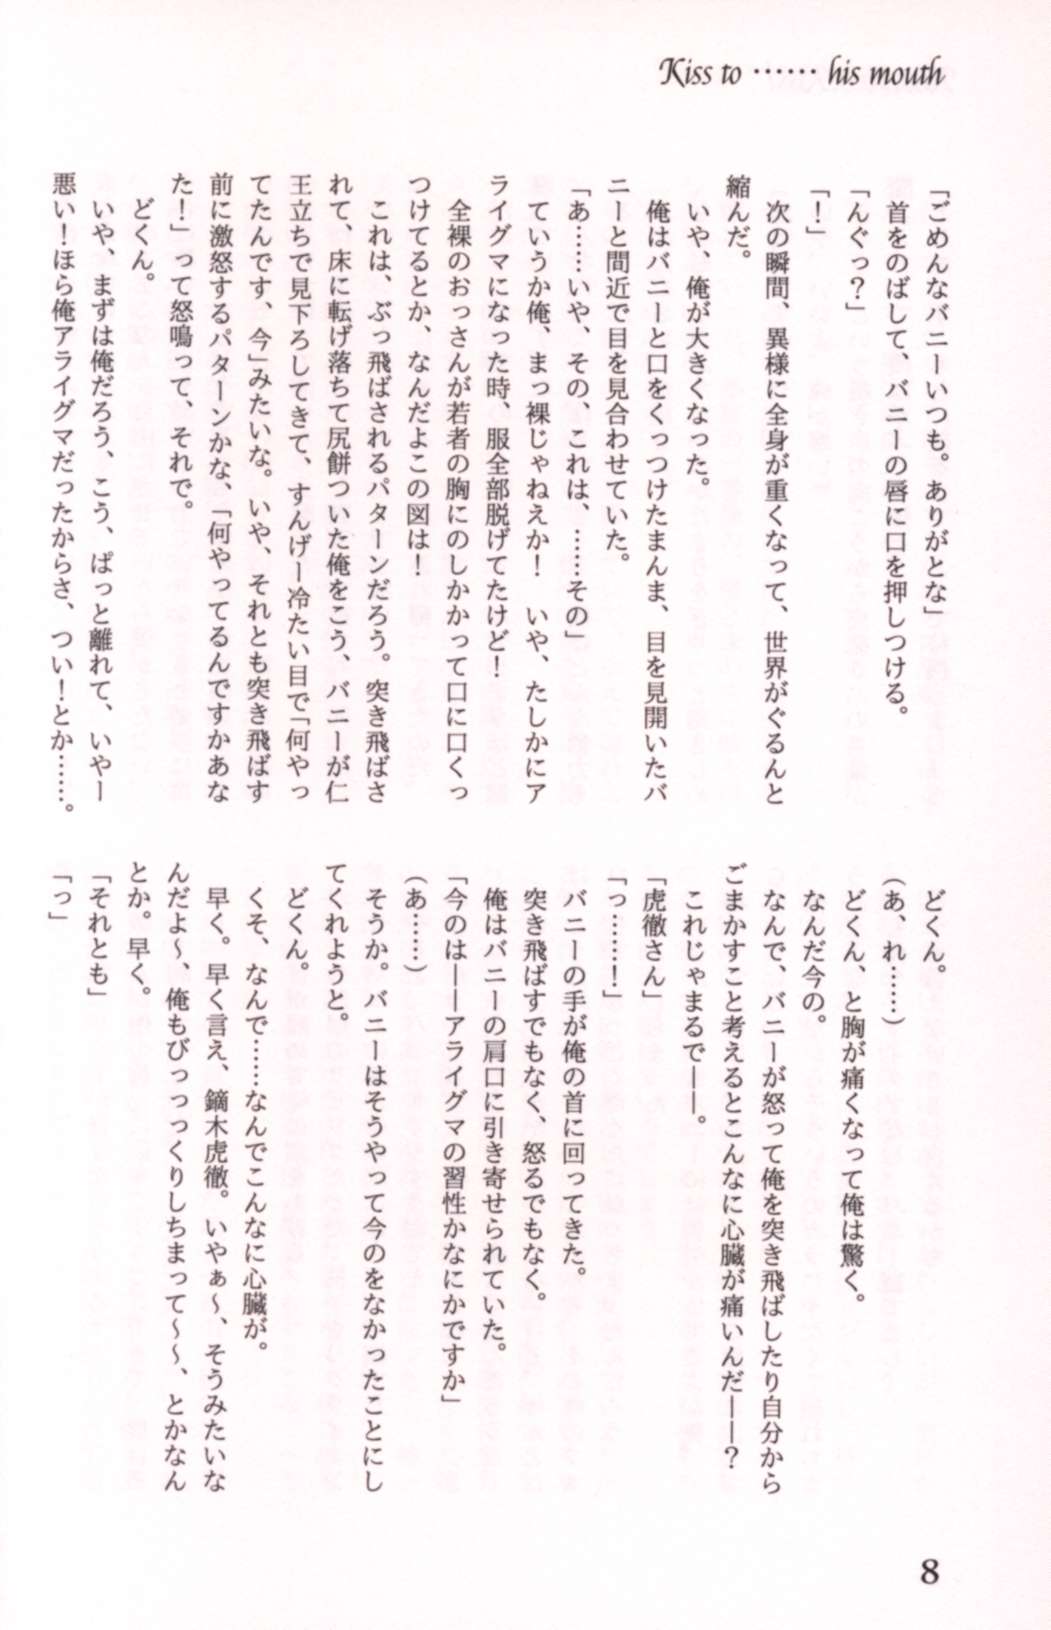 Kiss to …… his mouth
「ごめんなバニーいつも。ありがとな」
首をのばして、バニーの唇に口を押しつける。
「んぐっ？」
「！」
次の瞬間、異様に全身が重くなって、世界がぐるんと
縮んだ。
いや、俺が大きくなった。
俺はバニーと口をくっつけたまんま、目を見開いたバ
ニーと間近で目を見合わせていた。
「あ……いや、その、これは、……その」
ていうか俺、まっ裸じゃねえか！　いや、たしかにア
ライグマになった時、服全部脱げてたけど！
全裸のおっさんが若者の胸にのしかかって口に口くっ
つけてるとか、なんだよこの図は！
これは、ぶっ飛ばされるパターンだろう。突き飛ばさ
れて、床に転げ落ちて尻餅ついた俺をこう、バニーが仁
王立ちで見下ろしてきて、すんげー冷たい目で「何やっ
てたんです、今」みたいな。いや、それとも突き飛ばす
前に激怒するパターンかな、「何やってるんですかあな
た！」って怒鳴って、それで。
どくん。
いや、まずは俺だろう、こう、ぱっと離れて、いやー
悪い！ほら俺アライグマだったからさ、つい！とか……。
どくん。
（あ、れ……）
どくん、と胸が痛くなって俺は驚く。
なんだ今の。
なんで、バニーが怒って俺を突き飛ばしたり自分から
ごまかすこと考えるとこんなに心臓が痛いんだ——？
これじゃまるで——。
「虎徹さん」
「っ……！」
バニーの手が俺の首に回ってきた。
突き飛ばすでもなく、怒るでもなく。
俺はバニーの肩口に引き寄せられていた。
「今のは——アライグマの習性かなにかですか」
（あ……）
そうか。バニーはそうやって今のをなかったことにし
てくれようと。
どくん。
くそ、なんで……なんでこんなに心臓が。
早く。早く言え、鏑木虎徹。いやぁ〜、そうみたいな
んだよ〜、俺もびっっっくりしちまって〜〜、とかなん
とか。早く。
「それとも」
「っ」
8